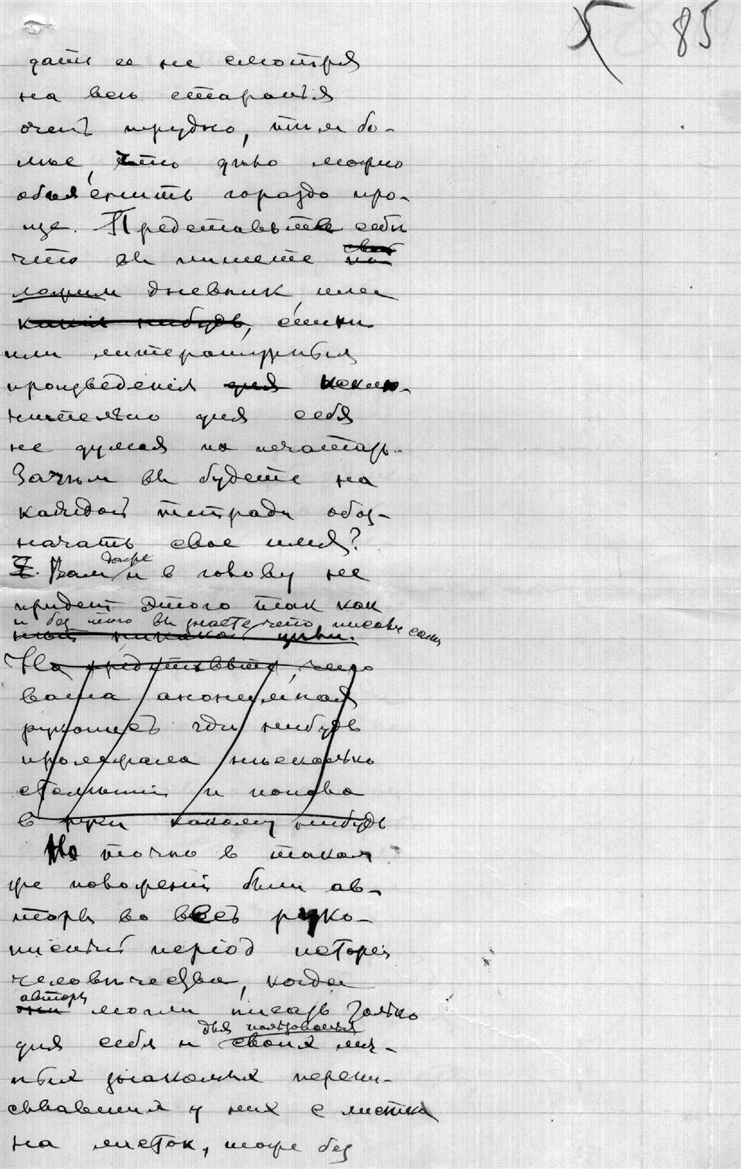 85
дать ее не смотря
на все старанія
очень трудно, тем бо-
лѣе, что дѣло можно
объяснить гораздо про-
ще. Представьте себѣ
что вы пишете свой
дневник, или
какія нибудь, стихи
или литературныя
произведенія для исклю-
чительно для себя
не думая их печатать.
Зачѣм вы будете на
каждой тетради обоз-
начать свое имя?
Вам даже и в голову не
придет этого так как
и без того вы знаете что писали сами
Но представьте, что
ваша анонимная
рукопись гдѣ нибудь
пролежала нѣсколько
столѣтій и попала
в руки какому нибудь
Но точно в таком
же положеніи были ав-
торы во весь руко-
писный період исторіи
человѣчества, когда
авторы
они могли писать только
для пользованія
для себя и своих лич-
ных знакомых перепи-
сывавших у них с листка
на листок, тоже без